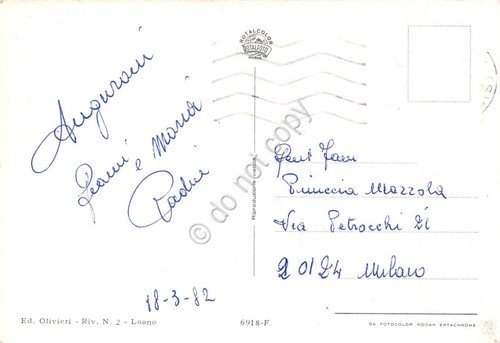 ROTALCOLOR
ROTALFOTO
MILANO
Auguroni
Gianni e Maria
Padri
18-3-82
Ed. Olivieri - Riv. N. 2 - Loano
6918-F
Riproduzione vietata
Gent Fam
Pinuccia Mazzola
Via Petrocchi 21
20124 Milano
DA FOTOCOLOR KODAK EKTACHROME
© do not copy